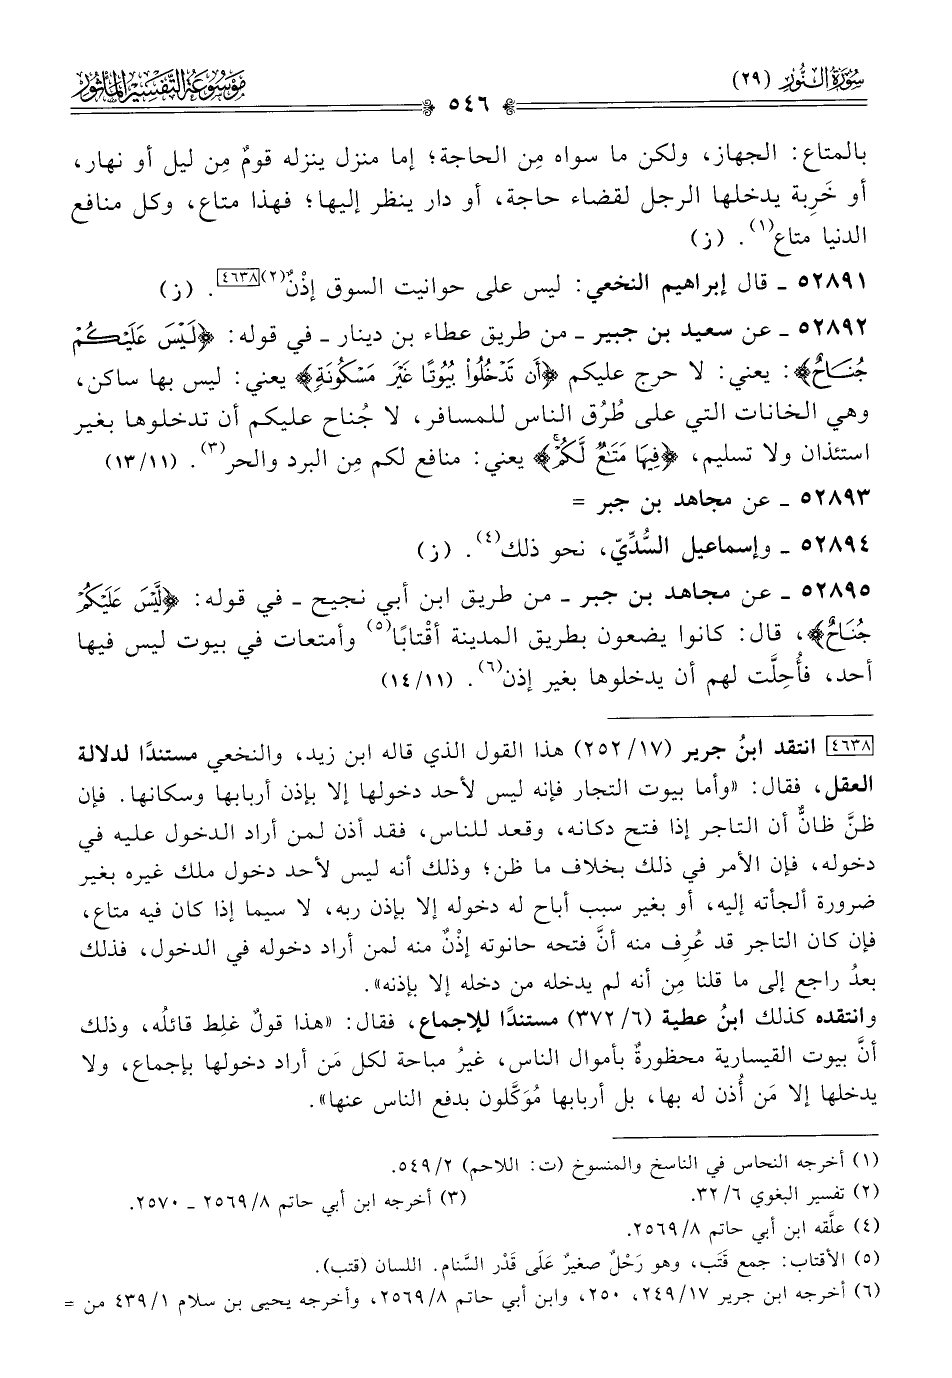 سُورَةُ النُّور (٢٩)
٥٤٦
مَوْسُوعَة التَّفْسِير المَأْثُور
بالمتاع: الجهاز، ولكن ما سواه مِن الحاجة؛ إما منزل ينزله قومٌ مِن ليل أو نهار،
أو خَرِبة يدخلها الرجل لقضاء حاجة، أو دار ينظر إليها؛ فهذا متاع، وكل منافع
الدنيا متاع(١). (ز)
٥٢٨٩١ ـ قال إبراهيم النخعي: ليس على حوانيت السوق إذْنٌ(٢)[٤٦٣٨]. (ز)
٥٢٨٩٢ ـ عن سعيد بن جبير ـ من طريق عطاء بن دينار ـ في قوله: ﴿لَيْسَ عَلَيْكُمْ
جُنَاحٌ﴾: يعني: لا حرج عليكم ﴿أَن تَدْخُلُوا۟ بُيُوتًا غَيْرَ مَسْكُونَةٍ﴾ يعني: ليس بها ساكن،
وهي الخانات التي على طُرُق الناس للمسافر، لا جُناح عليكم أن تدخلوها بغير
استئذان ولا تسليم، ﴿فِيهَا مَتَٰعٌ لَّكُمْ﴾ يعني: منافع لكم مِن البرد والحر(٣). (١١/ ١٣)
٥٢٨٩٣ ـ عن مجاهد بن جبر =
٥٢٨٩٤ ـ وإسماعيل السُّدِّيّ، نحو ذلك(٤). (ز)
٥٢٨٩٥ ـ عن مجاهد بن جبر ـ من طريق ابن أبي نجيح ـ في قوله: ﴿لَّيْسَ عَلَيْكُمْ
جُنَاحٌ﴾، قال: كانوا يضعون بطريق المدينة أقْتابًا(٥) وأمتعات في بيوت ليس فيها
أحد، فأُحِلَّت لهم أن يدخلوها بغير إذن(٦). (١١/ ١٤)
[٤٦٣٨] انتقد ابنُ جرير (١٧/ ٢٥٢) هذا القول الذي قاله ابن زيد، والنخعي مستندًا لدلالة
العقل، فقال: «وأما بيوت التجار فإنه ليس لأحد دخولها إلا بإذن أربابها وسكانها. فإن
ظنَّ ظانٌّ أن التاجر إذا فتح دكانه، وقعد للناس، فقد أذن لمن أراد الدخول عليه في
دخوله، فإن الأمر في ذلك بخلاف ما ظن؛ وذلك أنه ليس لأحد دخول ملك غيره بغير
ضرورة ألجأته إليه، أو بغير سبب أباح له دخوله إلا بإذن ربه، لا سيما إذا كان فيه متاع،
فإن كان التاجر قد عُرِف منه أنَّ فتحه حانوته إذْنٌ منه لمن أراد دخوله في الدخول، فذلك
بعدُ راجع إلى ما قلنا مِن أنه لم يدخله من دخله إلا بإذنه».
وانتقده كذلك ابنُ عطية (٦/ ٣٧٢) مستندًا للإجماع، فقال: «هذا قولٌ غلِط قائلُه، وذلك
أنَّ بيوت القيسارية محظورةٌ بأموال الناس، غيرُ مباحة لكل مَن أراد دخولها بإجماع، ولا
يدخلها إلا مَن أُذن له بها، بل أربابها مُوَكَّلون بدفع الناس عنها».
(١) أخرجه النحاس في الناسخ والمنسوخ (ت: اللاحم) ٢/ ٥٤٩.
(٢) تفسير البغوي ٦/ ٣٢. (٣) أخرجه ابن أبي حاتم ٨/ ٢٥٦٩ ـ ٢٥٧٠.
(٤) علَّقه ابن أبي حاتم ٨/ ٢٥٦٩.
(٥) الأقتاب: جمع قَتَب، وهو رَحْلٌ صغيرٌ عَلَى قَدْر السَّنام. اللسان (قتب).
(٦) أخرجه ابن جرير ١٧/ ٢٤٩، ٢٥٠، وابن أبي حاتم ٨/ ٢٥٦٩، وأخرجه يحيى بن سلام ١/ ٤٣٩ من =